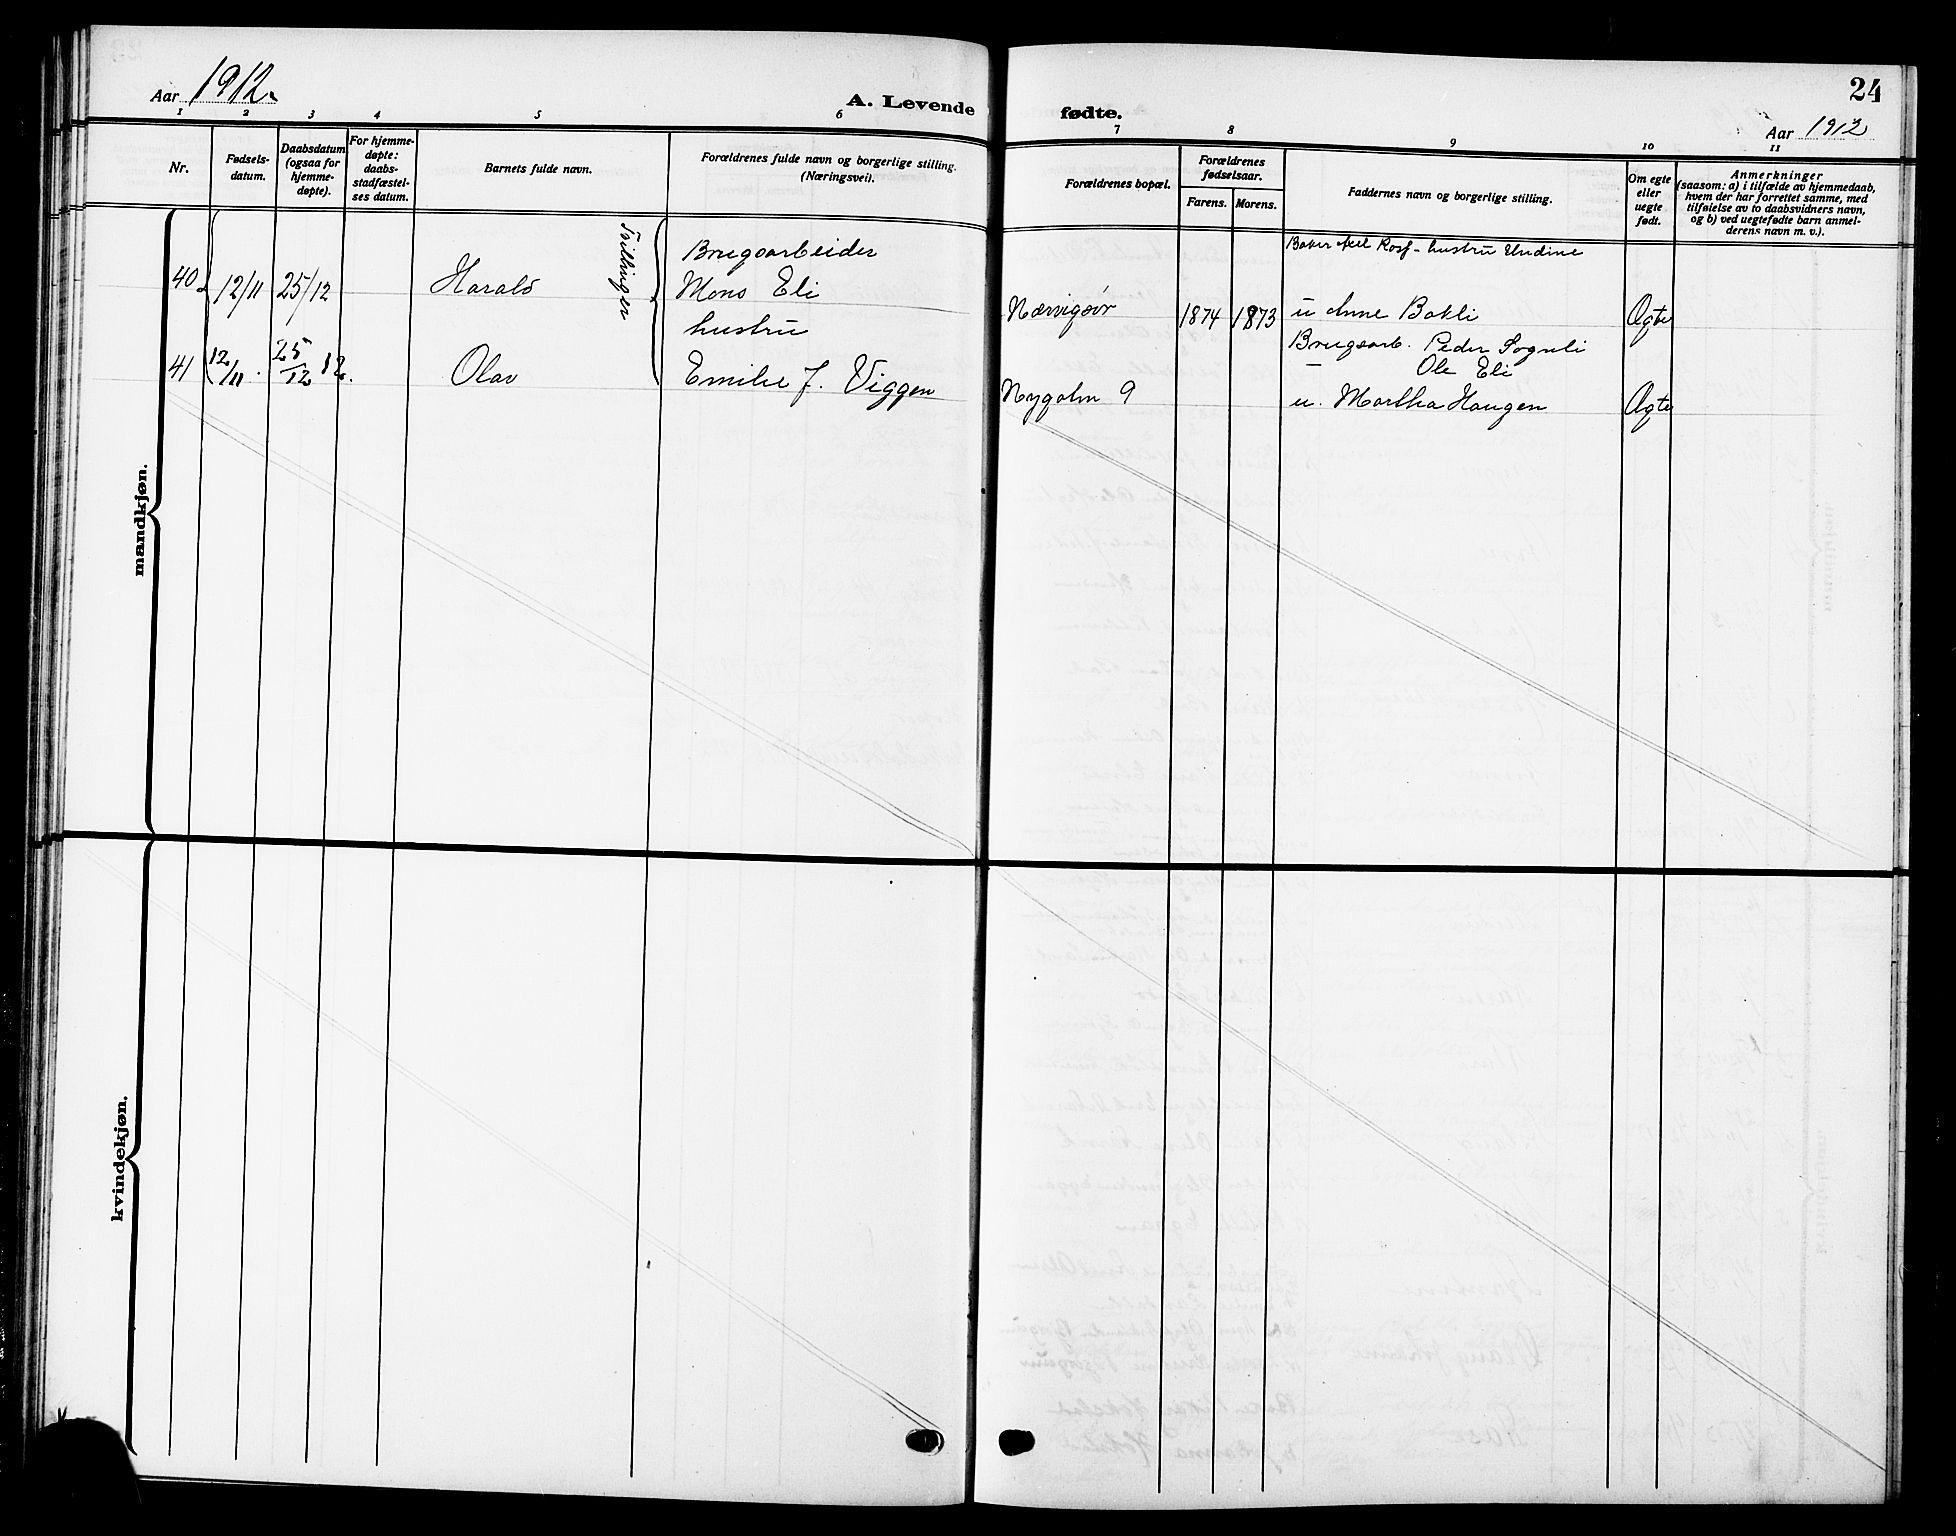 24
Aar 1912.
A. Levende fødte.
Aar 1912
1 2 3 4 5 6 7 8 9 10 11
Nr.
Fødsels-
datum.
Daabsdatum
(ogsaa for
hjemme-
døpte).
For hjemme-
døpte:
daabs-
stadfæstel-
ses datum.
Barnets fulde navn.
Forældrenes fulde navn og borgerlige stilling.
(Næringsvei).
Forældrenes bopæl.
Forældrenes
fødselsaar.
Farens. Morens.
Faddernes navn og borgerlige stilling.
Om egte
eller
uegte
født.
Anmerkninger
(saasom: a) i tilfælde av hjemmedaab,
hvem der har forrettet samme, med
tilføielse av to daabsvidners navn,
og b) ved uegtefødte barn anmel-
derens navn m. v.).
mandkjøn.
40
12/11
25/12
Harald
Tvillinger
Brugsarbeider
Mons Eli
hustru
Emilie J. Viggen
1874
1873
Baker Axel Rosf- hustru Undine
u Anne Bakli
Ægte
41
12/11.
25/12 12.
Olav
9
Brugsarb. Peder Sognli
Ole Eli
u. Martha Haugen
Ægte
kvindekjøn.